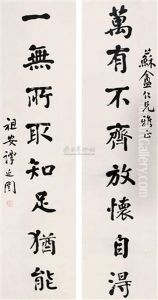 蘇盦仁兄雅正
萬有不齊放懷自得
一無所取知足猶能
祖安譚延闓